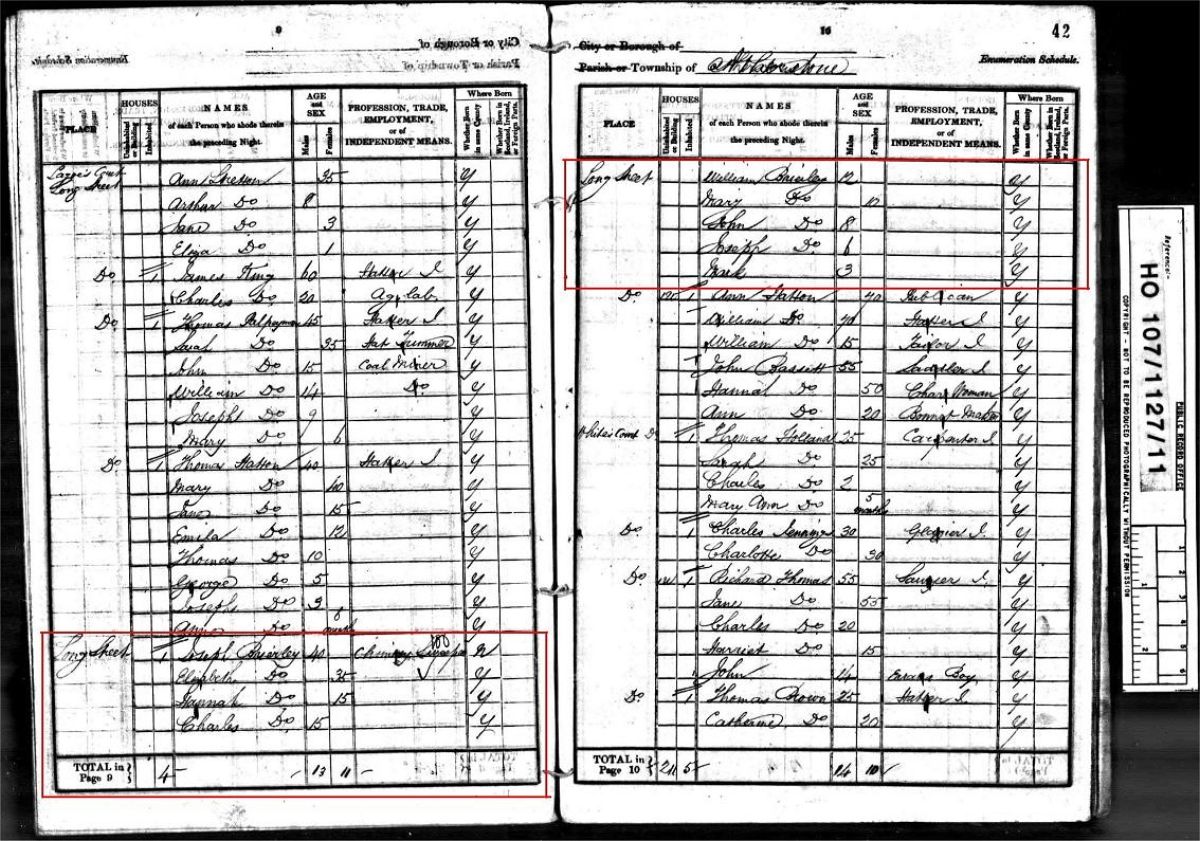 9
City or Borough of
Parish or Township of
Enumeration Schedule.
PLACE
HOUSES
Uninhabited or Building
Inhabited
NAMES
of each Person who abode therein
the preceding Night.
AGE and SEX
Males
Females
PROFESSION, TRADE,
EMPLOYMENT,
or of
INDEPENDENT MEANS.
Where Born
Whether Born in same County
Whether Born in Scotland, Ireland, or Foreign Parts.
Long Street Ann 35 Y
Arthur Do 8 Y
Jane Do 3 Y
Eliza Do 1 Y
Do 1 James King 60 Hatter J Y
Charles Do 20 Ag lab Y
Do 1 Thomas 45 Hatter J Y
Sarah Do 35 Hat Trimmer Y
John Do 15 Coal Miner Y
William Do 14 Do Y
Joseph Do 9 Y
Mary Do 6 Y
Do 1 Thomas Hatton 40 Hatter J Y
Mary Do 40 Y
Jane Do 15 Y
Do 12 Y
Thomas Do 10 Y
George Do 5 Y
Joseph Do 3 Y
Do Y
Long Street 1 Joseph Brierley 40 Chimney Sweeper N
Elizabeth Do 35 Y
Hannah Do 15 Y
Charles Do 15 Y
TOTAL in
Page 9 4 13 11
10
42
City or Borough of
Parish or Township of Atherstone
Enumeration Schedule.
PLACE
HOUSES
Uninhabited or Building
Inhabited
NAMES
of each Person who abode therein
the preceding Night.
AGE and SEX
Males
Females
PROFESSION, TRADE,
EMPLOYMENT,
or of
INDEPENDENT MEANS.
Where Born
Whether Born in same County
Whether Born in Scotland, Ireland, or Foreign Parts.
Long Street William Brierley 12 Y
Mary Do 10 Y
John Do 8 Y
Joseph Do 6 Y
Mark 3 Y
Do 1 Ann Hatton 40 Publican Y
William Do Hatter J Y
William Do 15 Tailor J Y
John Bassett 55 Y
Hannah Do 50 Char Woman Y
Ann Do 20 Bonnet Maker Y
White's Court Do 1 Thomas Holland 25 Carpenter J Y
Sarah Do 25 Y
Charles Do 2 Y
Mary Ann Do 5 months Y
Do 1 Charles Jennings 30 J Y
Charlotte Do 30 Y
Do 1 Richard Thomas 55 J Y
Jane Do 55 Y
Charles Do 20 Y
Harriet Do 15 Y
John 14 Errand Boy Y
Do 1 Thomas 25 Hatter J Y
Catherine Do 20 Y
TOTAL in
Page 10 5 14 10
Reference:-
HO 107/1127/11
PUBLIC RECORD OFFICE
COPYRIGHT - NOT TO BE REPRODUCED PHOTOGRAPHICALLY WITHOUT PERMISSION